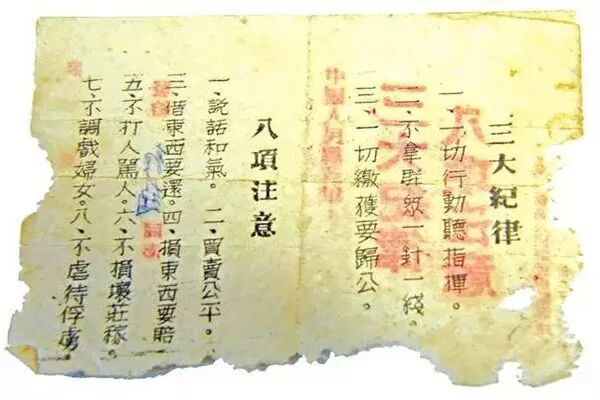 三大紀律
一、一切行動聽指揮。
二、不拿群眾一針一綫。
三、一切繳獲要歸公。
八項注意
一、說話和氣。二、買賣公平。
三、借東西要還。四、損東西要賠
五、不打人駡人。六、不損壞莊稼。
七、不調戲婦女。八、不虐待俘虜。